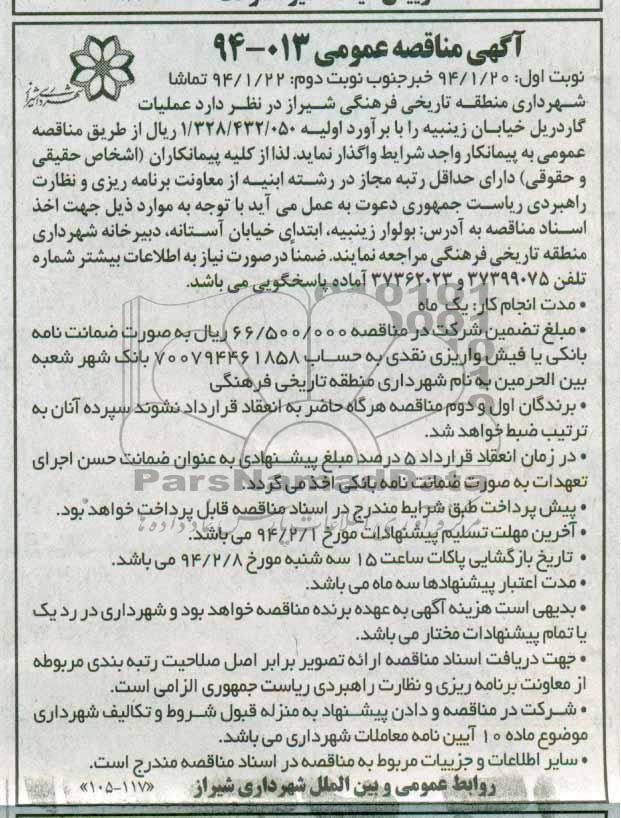 آگهی مناقصه عمومی ۰۱۳-۹۴
نوبت اول: ۹۴/۱/۲۰ خبرجنوب نوبت دوم: ۹۴/۱/۲۲ تماشا
شهرداری منطقه تاریخی فرهنگی شیراز در نظر دارد عملیات
گاردریل خیابان زینبیه را با برآورد اولیه ۱/۳۲۸/۴۳۲/۰۵۰ ریال از طریق مناقصه
عمومی به پیمانکار واجد شرایط واگذار نماید. لذا از کلیه پیمانکاران (اشخاص حقیقی
و حقوقی) دارای حداقل رتبه مجاز در رشته ابنیه از معاونت برنامه ریزی و نظارت
راهبردی ریاست جمهوری دعوت به عمل می آید با توجه به موارد ذیل جهت اخذ
اسناد مناقصه به آدرس: بولوار زینبیه، ابتدای خیابان آستانه، دبیرخانه شهرداری
منطقه تاریخی فرهنگی مراجعه نمایند. ضمناً درصورت نیاز به اطلاعات بیشتر شماره
تلفن ۳۷۳۹۹۰۷۵ و ۳۷۳۶۲۰۲۳ آماده پاسخگویی می باشد.
• مدت انجام کار: یک ماه
• مبلغ تضمین شرکت در مناقصه ۶۶/۵۰۰/۰۰۰ ریال به صورت ضمانت نامه
بانکی یا فیش واریزی نقدی به حساب ۷۰۰۷۹۴۴۶۱۸۵۸ بانک شهر شعبه
بین الحرمین به نام شهرداری منطقه تاریخی فرهنگی
• برندگان اول و دوم مناقصه هرگاه حاضر به انعقاد قرارداد نشوند سپرده آنان به
ترتیب ضبط خواهد شد.
• در زمان انعقاد قرارداد ۵ درصد مبلغ پیشنهادی به عنوان ضمانت حسن اجرای
تعهدات به صورت ضمانت نامه بانکی اخذ می گردد.
ParsNamadData
• پیش پرداخت طبق شرایط مندرج در اسناد مناقصه قابل پرداخت خواهد بود.
• آخرین مهلت تسلیم پیشنهادات مورخ ۹۴/۲/۱ می باشد.
• تاریخ بازگشایی پاکات ساعت ۱۵ سه شنبه مورخ ۹۴/۲/۸ می باشد.
• مدت اعتبار پیشنهادها سه ماه می باشد.
• بدیهی است هزینه آگهی به عهده برنده مناقصه خواهد بود و شهرداری در رد یک
یا تمام پیشنهادات مختار می باشد.
• جهت دریافت اسناد مناقصه ارائه تصویر برابر اصل صلاحیت رتبه بندی مربوطه
از معاونت برنامه ریزی و نظارت راهبردی ریاست جمهوری الزامی است.
• شرکت در مناقصه و دادن پیشنهاد به منزله قبول شروط و تکالیف شهرداری
موضوع ماده ۱۰ آیین نامه معاملات شهرداری می باشد.
• سایر اطلاعات و جزییات مربوط به مناقصه در اسناد مناقصه مندرج است.
روابط عمومی و بین الملل شهرداری شیراز «۱۱۷-۱۰۵»